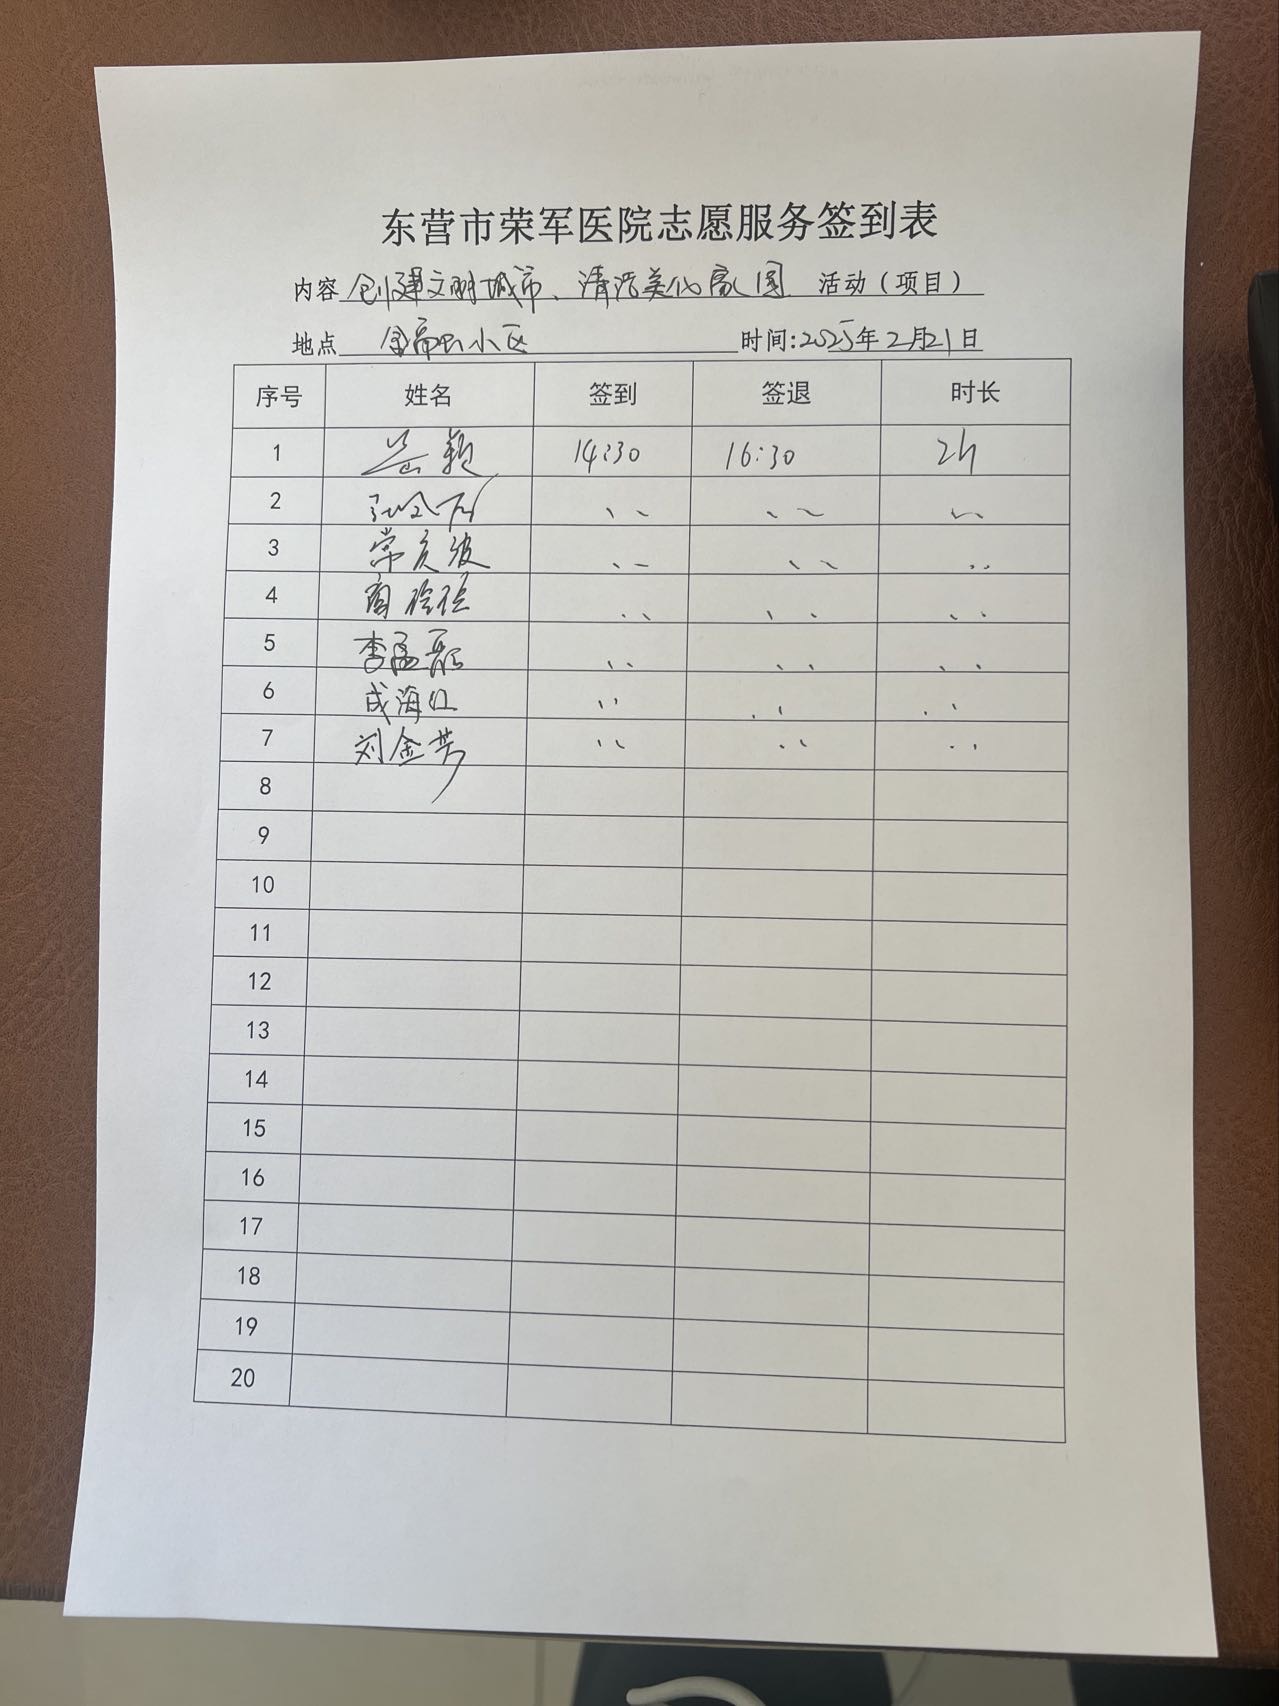 东营市荣军医院志愿服务签到表
内容 创建文明城市、清洁美化家园 活动（项目）
地点 小区 时间:2025年2月21日
序号 姓名 签到 签退 时长
1 14:30 16:30 2h
2 、、 、、 、、
3 常 波 、、 、、 、、
4 、、 、、 、、
5 李孟 、、 、、 、、
6 成海红 、、 、、 、、
7 刘金芳 、、 、、 、、
8
9
10
11
12
13
14
15
16
17
18
19
20